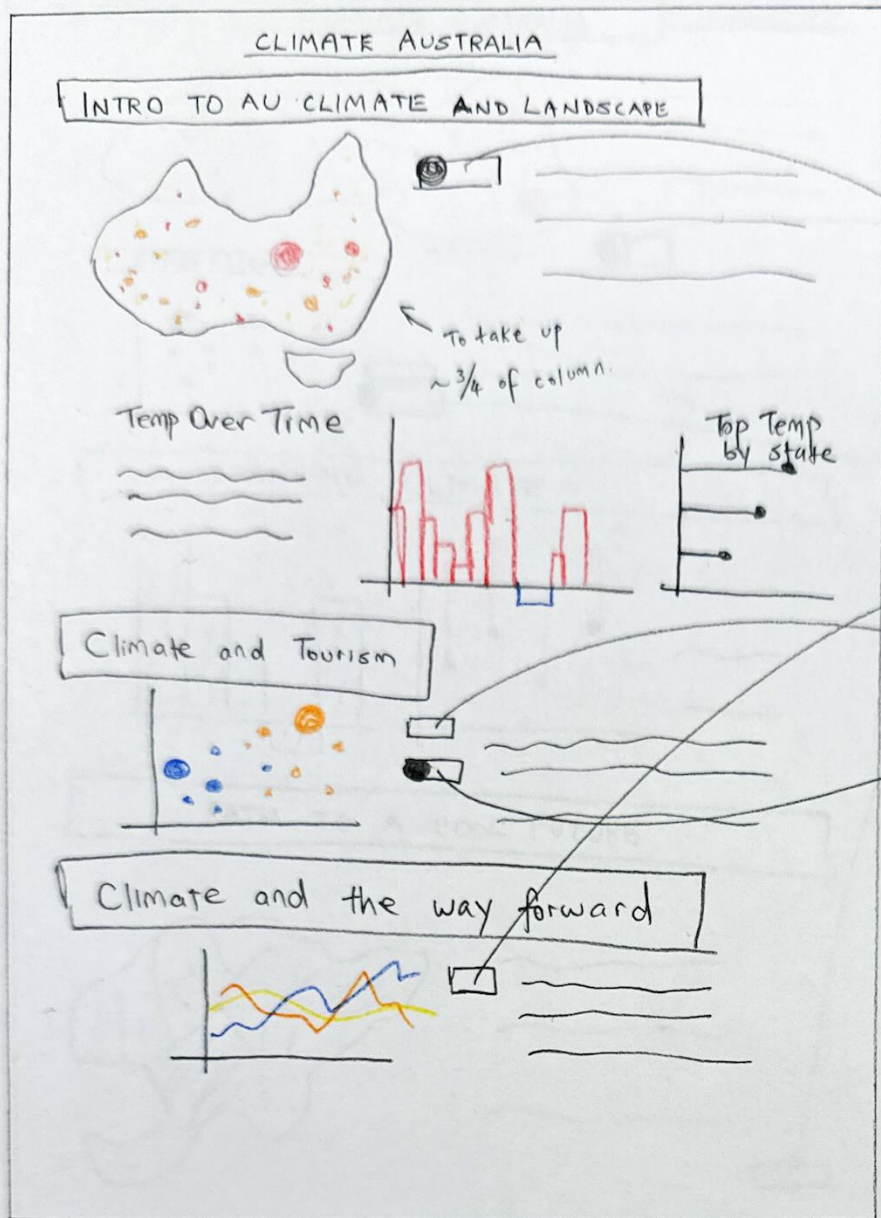 CLIMATE AUSTRALIA
INTRO TO AU CLIMATE AND LANDSCAPE
To take up
~ 3/4 of column.
Temp Over Time
Top Temp
by state
Climate and Tourism
Climate and the way forward